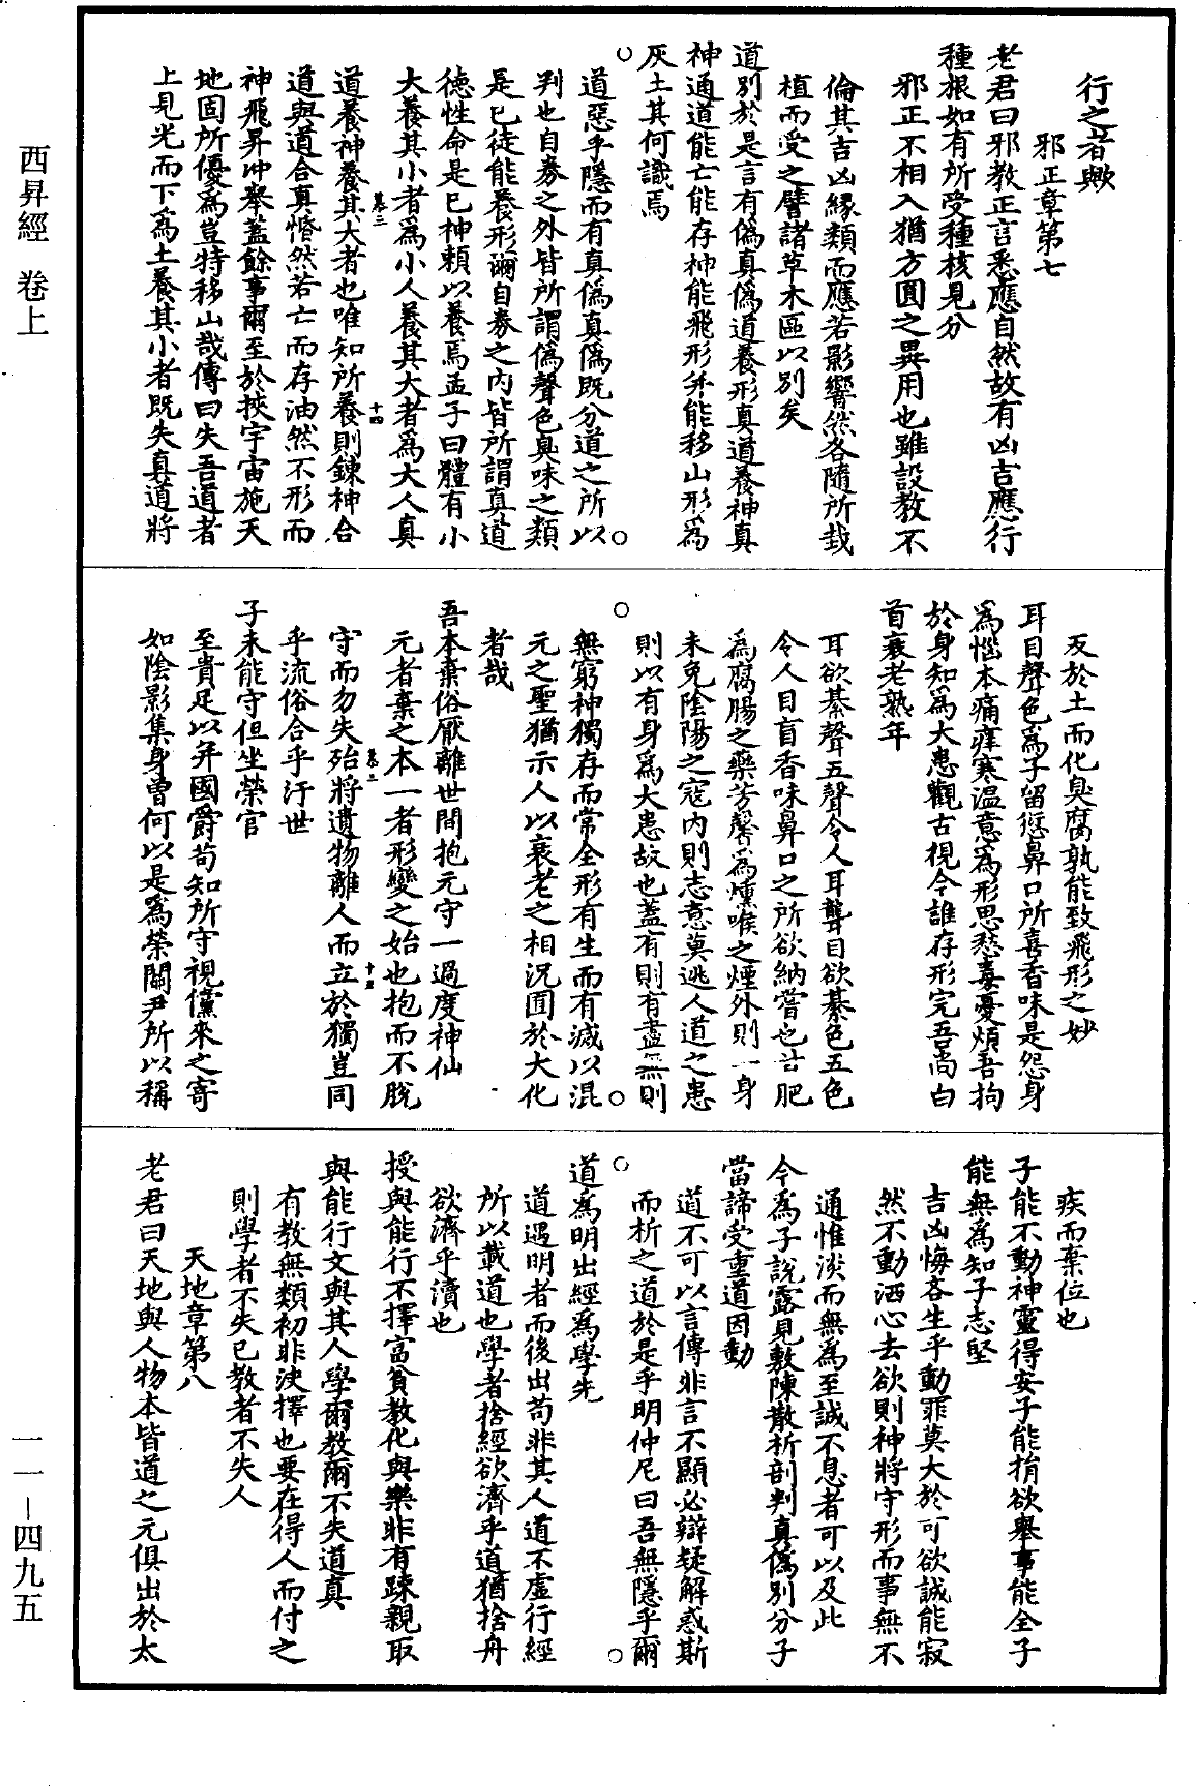 西昇經 卷上
一一—四九五
行之者歟
邪正章第七
老君曰邪教正言悉應自然故有凶吉應行
種根如有所受種核見分
邪正不相入猶方圓之異用也雖設教不
倫其吉凶緣類而應若影響然各隨所栽
植而受之譬諸草木區以別矣
道別於是言有偽真偽道養形真道養神真
神通道能亡能存神能飛形并能移山形為
灰土其何識焉
道惡乎隱而有真偽真偽既分道之所以
判也自券之外皆所謂偽聲色臭味之類
是已徒能養形謂自券之内皆所謂真道
德性命是已神賴以養焉孟子曰體有小
大養其小者為小人養其大者為大人真
道養神養其大者也唯知所養則鍊神合
卷二
十四
道與道合真惛然若亡而存油然不形而
神飛昇冲舉蓋餘事爾至於挾宇宙施天
地固所優為豈特移山哉傳曰失吾道者
上見光而下為土養其小者既失真道將
反於土而化臭腐孰能致飛形之妙
耳目聲色為子留愆鼻口所喜香味是怨身
為惱本痛痒寒溫意為形思愁毒憂煩吾拘
於身知為大患觀古視今誰存形完吾尚白
首衰老孰年
耳欲綦聲五聲令人耳聾目欲綦色五色
令人目盲香味鼻口之所欲納嘗也甘肥
為腐腸之藥芳馨為燻喉之煙外則一身
未免陰陽之寇内則志意莫逃人道之患
則以有身為大患故也蓋有則有盡無則
無窮神獨存而常全形有生而有滅以混
元之聖猶示人以衰老之相況囿於大化
者哉
吾本棄俗厭離世間抱元守一過度神仙
元者棄之本一者形變之始也抱而不脫
卷二
守而勿失殆將遺物離人而立於獨豈同
乎流俗合乎汙世
子未能守但坐榮官
至貴足以并國爵苟知所守視儻來之寄
如陰影集身曾何以是為榮關尹所以稱
疾而棄位也
子能不動神靈得安子能捐欲舉事能全子
能無為知子志堅
吉凶悔吝生乎動罪莫大於可欲誠能寂
然不動洒心去欲則神將守形而事無不
通惟淡而無為至誠不息者可以及此
今為子說露見敷陳散析剖判真偽別分子
當諦受重道因動
道不可以言傳非言不顯必辯疑解惑斯
而析之道於是乎明仲尼曰吾無隱乎爾
道為明出經為學先
道遇明者而後出苟非其人道不虛行經
所以載道也學者捨經欲濟乎道猶捨舟
欲濟乎瀆也
授與能行不擇富貧教化與樂非有踈親取
與能行文與其人學爾教爾不失道真
有教無類初非決擇也要在得人而付之
則學者不失已教者不失人
天地章第八
老君曰天地與人物本皆道之元俱出於太